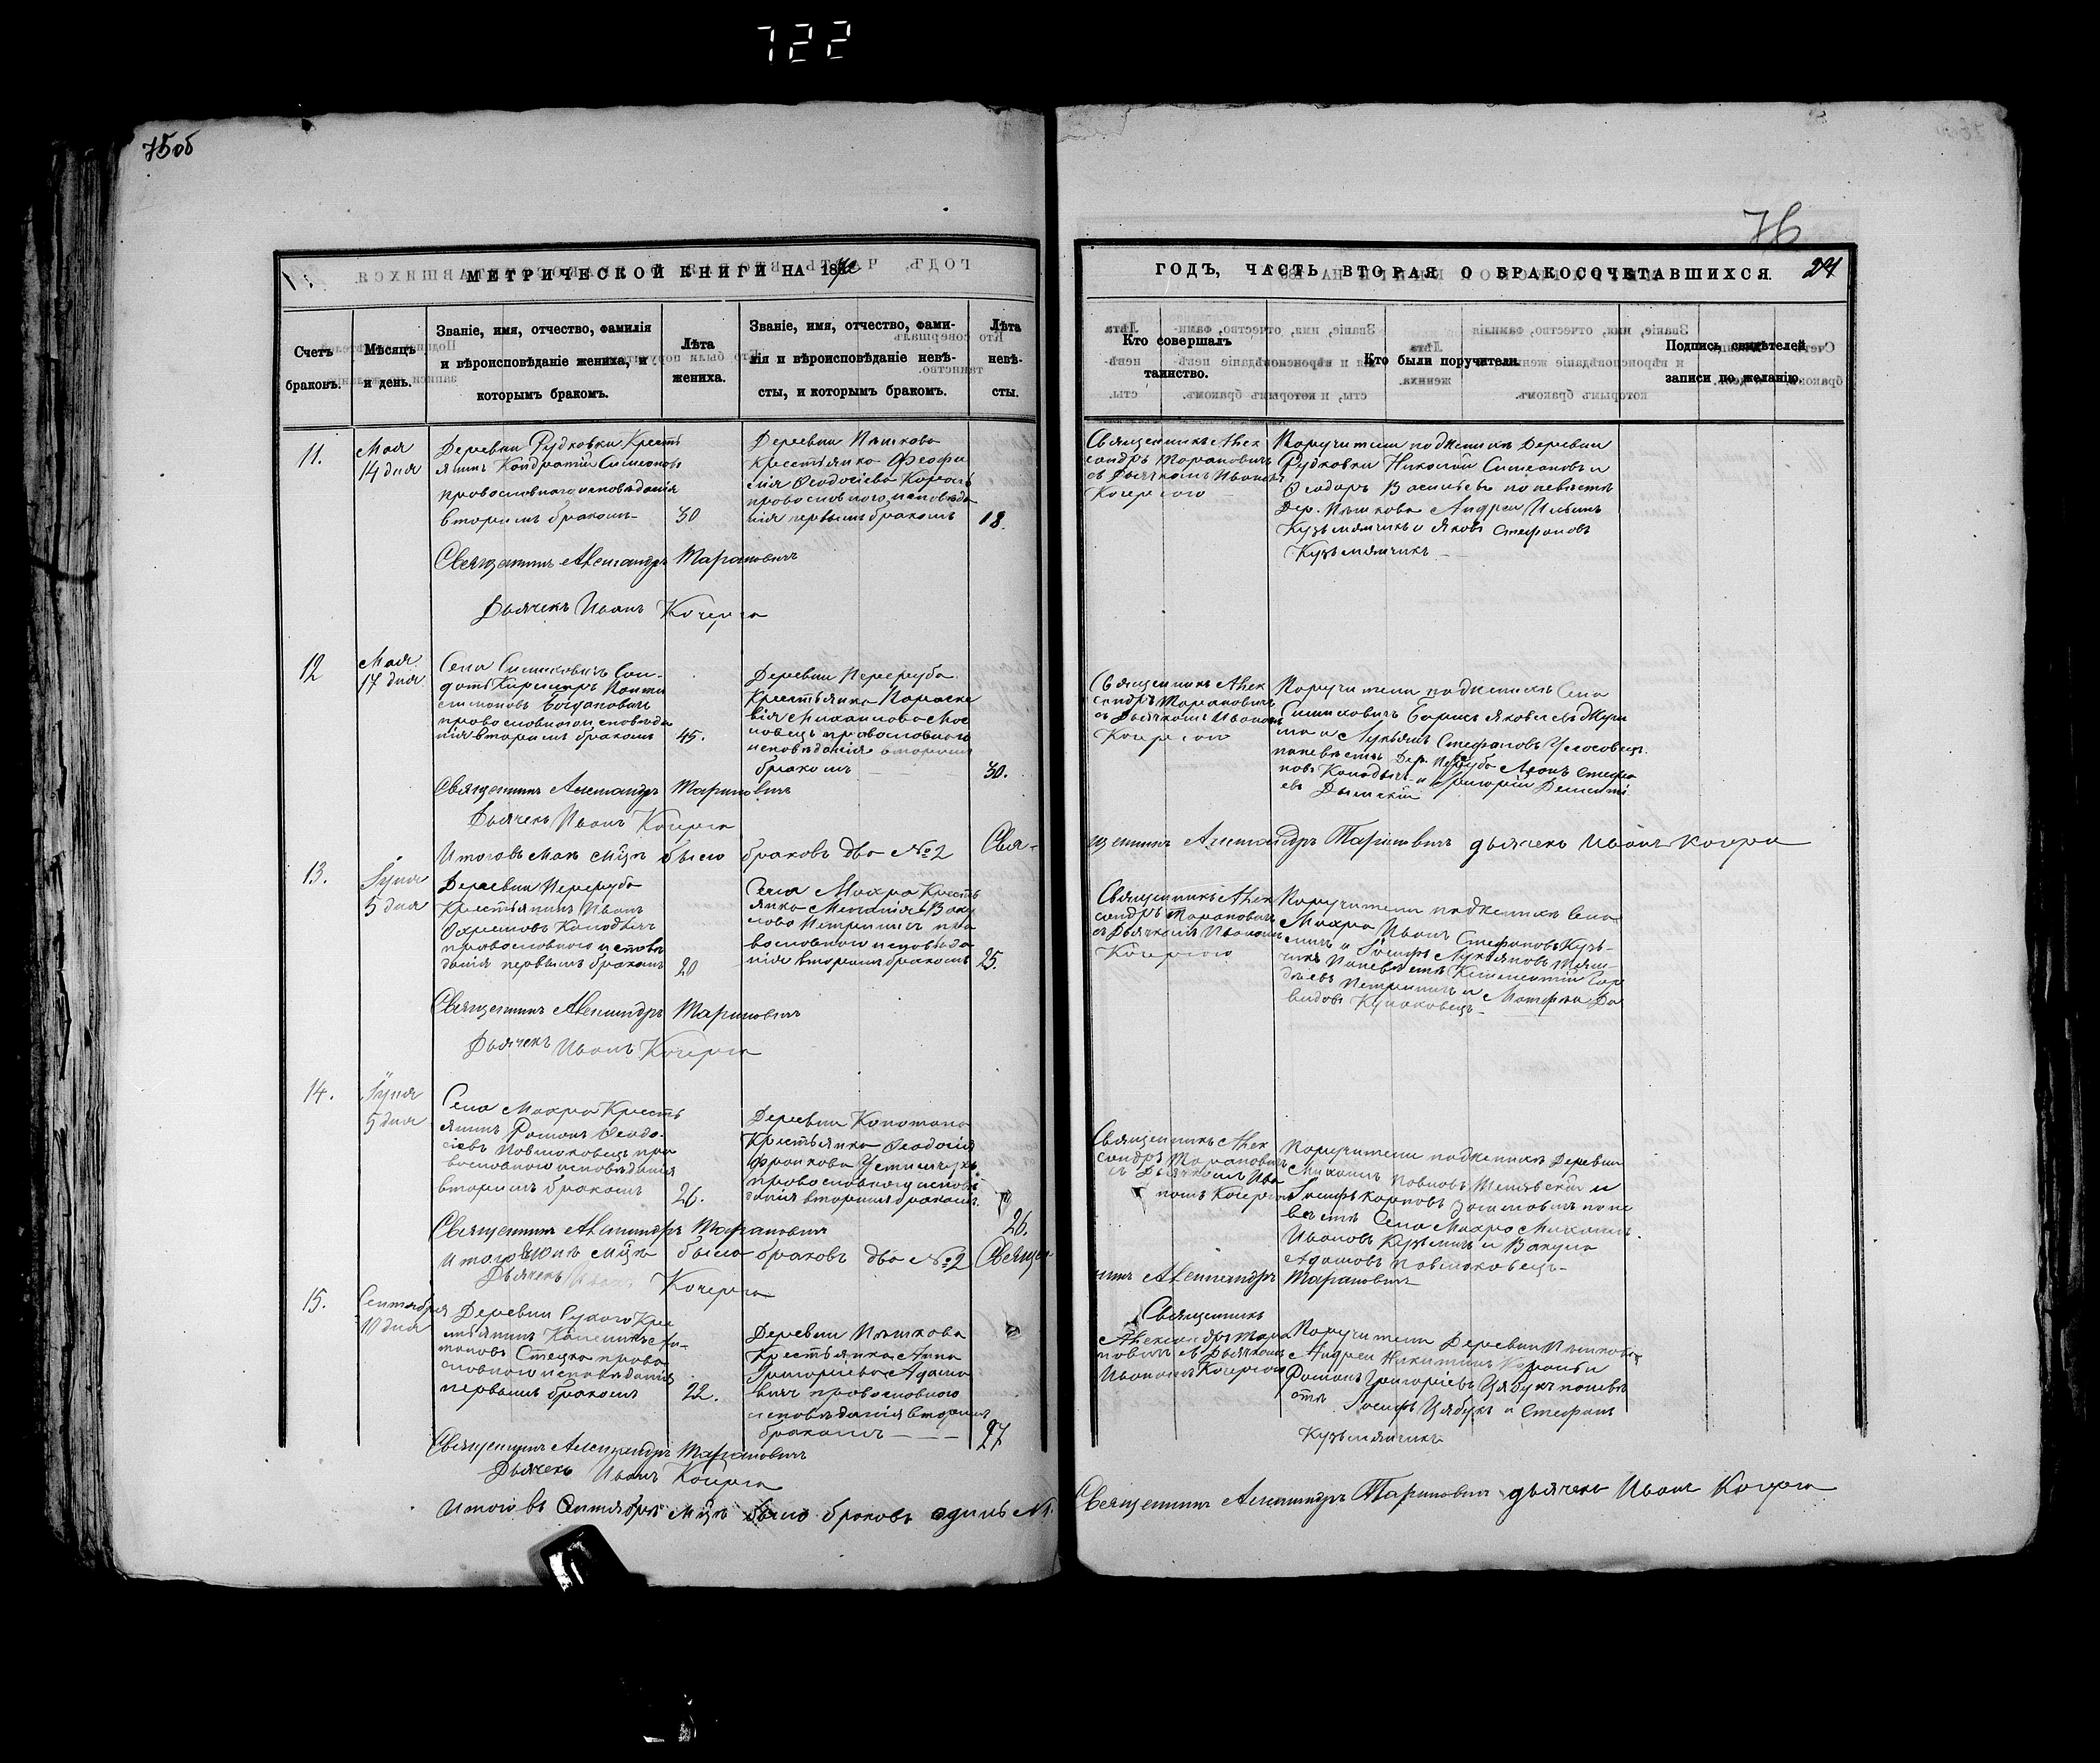 722
75об
76
МЕТРИЧЕСКОЙ КНИГИ НА 18
ГОДЪ, ЧАСТЬ ВТОРАЯ О БРАКОСОЧЕТАВШИХСЯ. 24
Счетъ браковъ.
Мѣсяцъ и день.
Званіе, имя, отчество, фамилія
и вѣроисповѣданіе жениха, и
которымъ бракомъ.
Лѣта
жениха.
Званіе, имя, отчество, фами-
лія и вѣроисповѣданіе невѣ-
сты, и которымъ бракомъ.
Лѣта
невѣ-
сты.
Кто совершалъ
таинство.
Кто были поручители.
Подпись свидѣтелей
записи по желанію.
11.
Мая
14 дня
Деревни Рудковки Кресть
янинъ Кондратій Симеоновъ
православнаго исповѣданія
вторымъ бракомъ
30
Деревни Пѣшково
Крестьянка Феофи
лія Ѳеодосіева Король
православнаго исповѣда
нія первымъ бракомъ
18.
Священникъ Алек
сандръ Тарановичъ
съ Дьячкомъ Иваномъ
Кочергою
Поручители по женихѣ Деревни
Рудковки Николай Симеоновъ и
Ѳеодоръ Васильевъ по невѣстѣ
Дер. Пѣшково Андрей Ильинъ
Кузьмянчикъ и Яковъ Стефановъ
Кузьмянчикъ
Священникъ Александръ Тарановичъ
Дьячекъ Иванъ Кочерга
12
Мая
17 дня
Села Симиховичъ Сол-
датъ
Богдановичъ
православнаго исповѣда
нія вторымъ бракомъ
45.
Деревни Переруба
Крестьянка Параске
вія Михаилова
православнаго
исповѣданія вторымъ
бракомъ
30.
Священникъ Алек
сандръ Тарановичъ
съ Дьячкомъ Иваномъ
Кочергою
Поручители по женихѣ Села
Симиховичъ Борисъ Яковлевъ
и Лукьянъ Стефановъ
по невѣстѣ Дер. Переруба Леонъ
Колодычъ и Григорій
Священникъ Александръ Тарановичъ
Дьячекъ Иванъ Кочерга
Итого въ Маѣ м-цѣ было браковъ два №2 Свя-
щенникъ Александръ Тарановичъ дьячекъ Иванъ Кочерга
13.
Іуня
5 дня
Деревни Переруба
Крестьянинъ Иванъ
Колодычъ
православнаго исповѣ
данія первымъ бракомъ
20
Села Мохро Кресть
янка Меланія Ваку
лова пра
вославнаго исповѣда
нія вторымъ бракомъ
25.
Священникъ Алек
сандръ Тарановичъ
съ Дьячкомъ Иваномъ
Кочергою
Поручители по женихѣ Села
Мохро Иванъ Стефановъ Кузь-
мичъ и Іосифъ Лукьяновъ
по невѣстѣ Климентій
и Матфей Да
видовъ
Священникъ Александръ Тарановичъ
Дьячекъ Иванъ Кочерга
14.
Іуня
5 дня
Села Мохро Кресть
янинъ Романъ Ѳеодо-
сіевъ пра
вославнаго исповѣданія
вторымъ бракомъ
26.
Деревни
Крестьянка Ѳеодосія
православнаго исповѣ
данія вторымъ бракомъ
26.
Священникъ Алек
сандръ Тарановичъ
съ Дьячкомъ Ива
номъ Кочергою
Поручители по женихѣ Деревни
Михаилъ Павловъ и
Іосифъ Карповъ по не
вѣстѣ Села Мохро Михаилъ
Ивановъ Кузьмичъ и Вакула
Адамовъ
Священникъ Александръ Тарановичъ
Итого въ Іюнѣ м-цѣ было браковъ два №2 Священ
никъ Александръ Тарановичъ
Дьячекъ Иванъ Кочерга
15.
Сентября
10 дня
Деревни Сухого Кре
стьянинъ
Стецко право
славнаго исповѣданія
первымъ бракомъ
22.
Деревни Пѣшково
Крестьянка Анна
Григоріева Адамо
вичъ православнаго
исповѣданія вторымъ
бракомъ
27
Священникъ
Александръ Тара
новичъ съ Дьячкомъ
Иваномъ Кочергою
Поручители Деревни Пѣшково
Андрей Никитинъ Король и
Романъ Григоріевъ Цябукъ по невѣ
стѣ Іосифъ Цябукъ и Стефанъ
Кузьмянчикъ
Священникъ Александръ Тарановичъ
Дьячекъ Иванъ Кочерга
Итого въ Сентябрѣ м-цѣ было браковъ одинъ №1.
Священникъ Александръ Тарановичъ дьячекъ Иванъ Кочерга